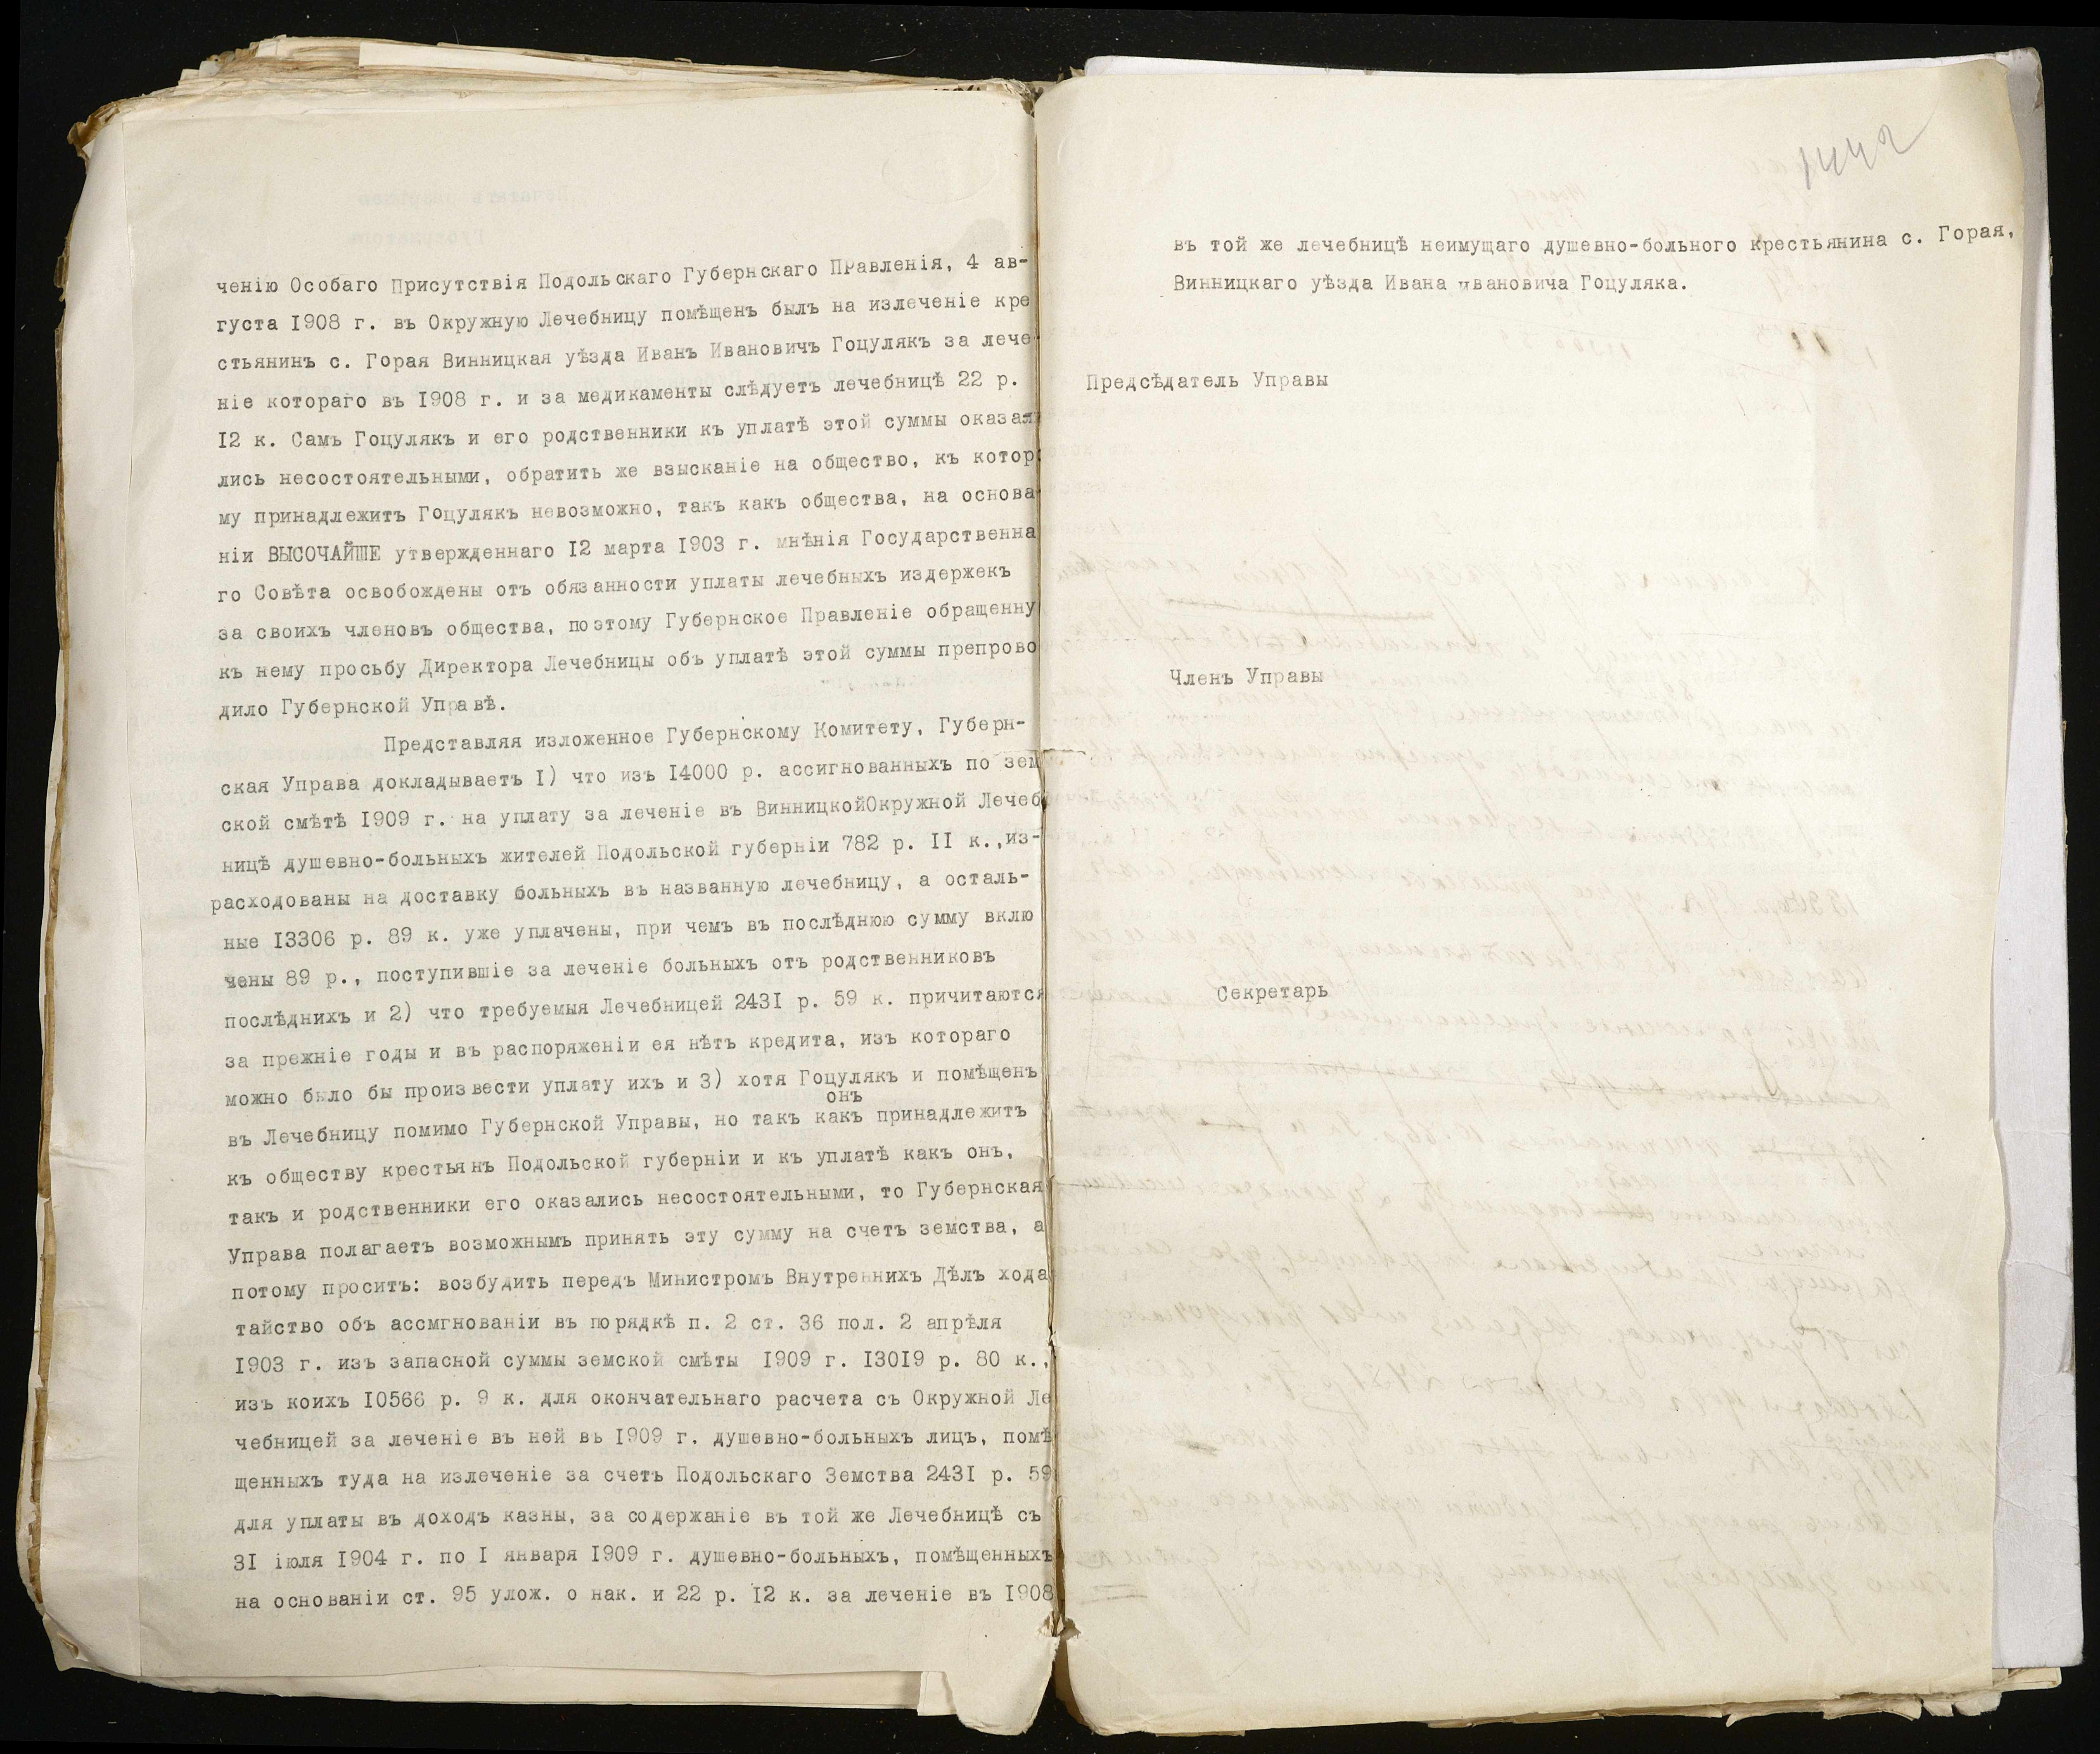 ченію Особаго Присутствія Подольскаго Губернскаго Правленія, 4 ав-
густа 1908 г. въ Окружную Лечебницу помѣщенъ былъ на излеченіе кре
стьянинъ с. Горая Винницкая уѣзда Иванъ Ивановичъ Гоцулякъ за лече
ніе котораго въ 1908 г. и за медикаменты слѣдуетъ лечебницѣ 22 р.
12 к. Самъ Гоцулякъ и его родственники къ уплатѣ этой суммы оказа
лись несостоятельными, обратить же взысканіе на общество, къ котор
му принадлежитъ Гоцулякъ невозможно, такъ какъ общества, на основа
ніи ВЫСОЧАЙШЕ утвержденнаго 12 марта 1903 г. мнѣнія Государственна
го Совѣта освобождены отъ обязанности уплаты лечебныхъ издержекъ
за своихъ членовъ общества, поэтому Губернское Правленіе обращенну
къ нему просьбу Директора Лечебницы объ уплатѣ этой суммы препрово
дило Губернской Управѣ.
Представляя изложенное Губернскому Комитету, Губерн-
ская Управа докладываетъ 1) что изъ 14000 р. ассигнованныхъ по зем
ской смѣтѣ 1909 г. на уплату за леченіе въ ВинницкойОкружной Лечеб
ницѣ душевно-больныхъ жителей Подольской губерніи 782 р. 11 к.,из-
расходованы на доставку больныхъ въ названную лечебницу, а осталь-
ные 13306 р. 89 к. уже уплачены, при чемъ въ послѣднюю сумму вклю
чены 89 р., поступившіе за леченіе больныхъ отъ родственниковъ
послѣднихъ и 2) что требуемыя Лечебницей 2431 р. 59 к. причитаются
за прежніе годы и въ распоряженіи ея нѣтъ кредита, изъ котораго
можно было бы произвести уплату ихъ и 3) хотя Гоцулякъ и помѣщенъ
онъ
въ Лечебницу помимо Губернской Управы, но такъ какъ принадлежитъ
къ обществу крестьянъ Подольской губерніи и къ уплатѣ какъ онъ,
такъ и родственники его оказались несостоятельными, то Губернская
Управа полагаетъ возможнымъ принять эту сумму на счетъ земства, а
потому проситъ: возбудить передъ Министромъ Внутреннихъ Дѣлъ хода
тайство объ ассмгнованіи въ порядкѣ п. 2 ст. 36 пол. 2 апрѣля
1903 г. изъ запасной суммы земской смѣты 1909 г. 13019 р. 80 к.,
изъ коихъ 10566 р. 9 к. для окончательнаго расчета съ Окружной Ле
чебницей за леченіе въ ней въ 1909 г. душевно-больныхъ лицъ, помѣ
щенныхъ туда на излеченіе за счетъ Подольскаго Земства 2431 р. 59
для уплаты въ доходъ казны, за содержаніе въ той же Лечебницѣ съ
31 іюля 1904 г. по 1 января 1909 г. душевно-больныхъ, помѣщенныхъ
на основаніи ст. 95 улож. о нак. и 22 р. 12 к. за леченіе въ 1908
въ той же лечебницѣ неимущаго душевно-больного крестьянина с. Горая,
Винницкаго уѣзда Ивана ивановича Гоцуляка.
Предсѣдатель Управы
Членъ Управы
Секретарь